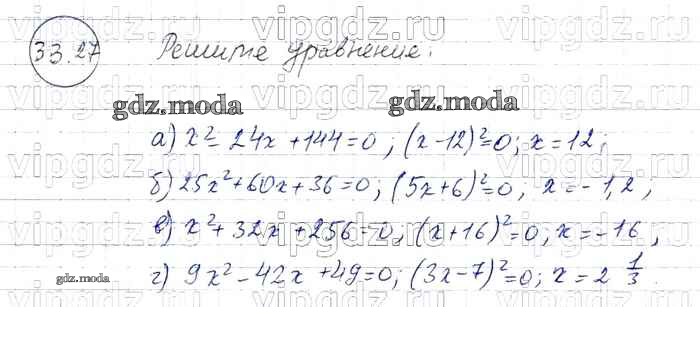 33.27 Решите уравнение:
gdz.moda gdz.moda
а) x² - 24x + 144 = 0; (x - 12)² = 0; x = 12;
б) 25x² + 60x + 36 = 0; (5x + 6)² = 0; x = - 1,2;
в) x² + 32x + 256 = 0; (x + 16)² = 0; x = - 16,
gdz.moda г) 9x² - 42x + 49 = 0; (3x - 7)² = 0; x = 2 1/3.
vipgdz.ru vipgdz.ru vipgdz.ru